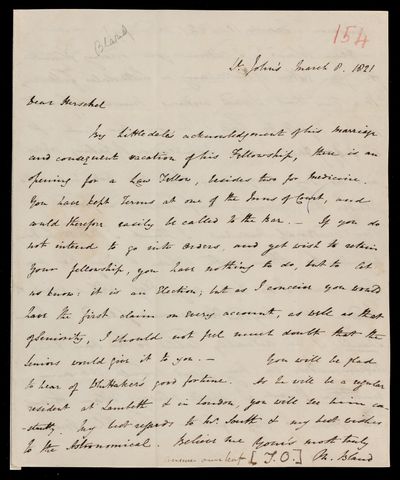 Bland
154
St. John's March 8. 1821
Dear Herschel
By Littledale's acknowledgment of his marriage
and consequent vacation of his Fellowship, there is an
opening for a Law Fellow, besides two for Medicine.
You have kept Terms at one of the Inns of Court, and
could therefore easily be called to the Bar. — If you do
not intend to go into Orders, and yet wish to retain
your fellowship, you have nothing to do, but to let
us know: it is an Election; but as I conceive you would
have the first claim on every account, as well as that
of Seniority, I should not feel much doubt that the
Seniors would give it to you. — You will be glad
to hear of Whittaker's good fortune. As he will be a regular
resident at Lambeth & in London, you will see him con-
stantly. My best regards to Mr. South & my best wishes
to the Astronomical. Believe me Yours most truly
answer overleaf [T.O.] M. Bland